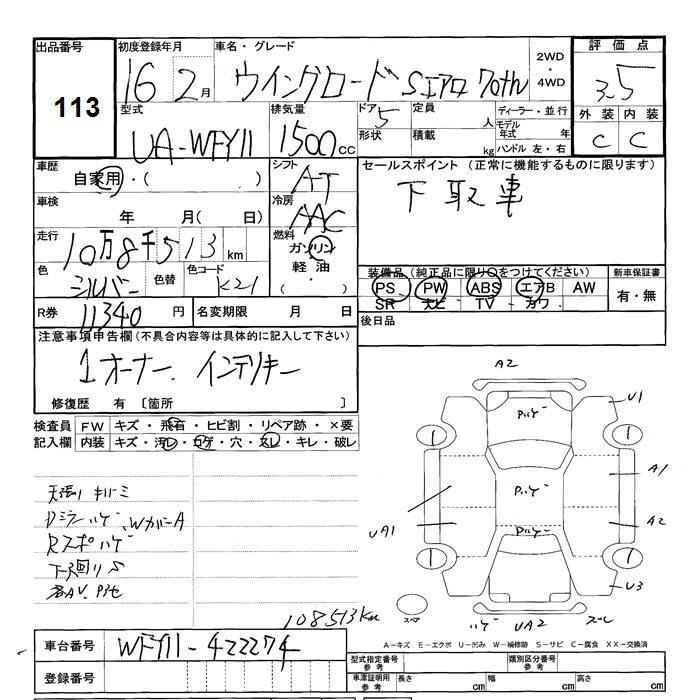 出品番号 初度登録年月 車名・グレード 2WD・4WD 評価点
113 16 2月 ウイングロード Sエアロ 70th 3.5
型式 排気量 ドア 定員 人 ディーラー・並行 外装 内装
UA-WFY11 1500cc 5 形状 積載 kg モデル年式 年 ハンドル 左・右 C C
車歴 シフト セールスポイント (正常に機能するものに限ります)
自家用・( ) AT 下取車
車検 冷房
年 月( 日) AAC
走行 燃料
10万8千513km ガソリン
色 色替 色コード 軽油 装備品(純正品に限り〇をつけてください) 新車保証書
シルバー K21 ・( ) PS PW ABS エアB AW 有・無
SR ナビ TV カワ
R券 11340円 名変期限 月 日 後日品
注意事項申告欄(不具合内容等は具体的に記入して下さい)
1オーナー. インテリキー
修復歴 有 〔箇所 〕
検査員記入欄 FW キズ・飛石・ヒビ割・リペア跡・×要
内装 キズ・汚レ・コゲ・穴・スレ・キレ・破レ
天張り キバミ
Dミラーハゲ、WカバーA
Rスポハゲ
下廻りS
108513km
A2
ハゲ
U1
1 1
A1
ハゲ
A2
UA1
ハゲ
1 1
U3
スペア
ハゲ UA2 スレ
A-キズ E-エクボ U-凹み W-補修跡 S-サビ C-腐食 XX-交換済
車台番号 WFY11-422274
型式指定番号 参考 類別区分番号 参考
登録番号 車庫証明用 参考 長さ cm 幅 cm 高さ cm